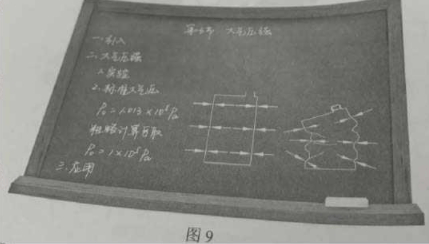 第5节 大气压强
一、引入
二、大气压强
1.实验
2.标准大气压
P₀=1.013×10⁵Pa
粗略计算可取
P₀=1×10⁵Pa
三、应用
图9